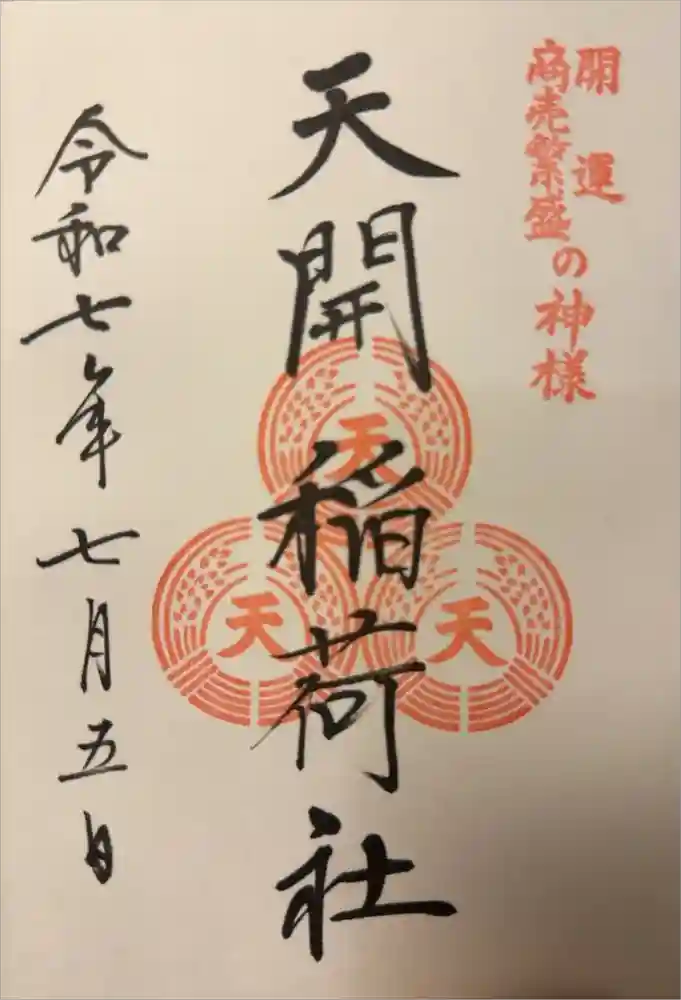 開運
商売繁盛
の神様
天開稲荷社
天
天
天
令和七年七月五日